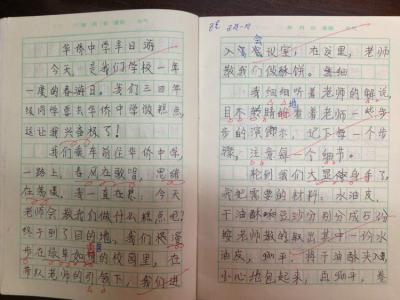 华侨中学半日游
今天，是我们学校一年
一度的春游日。我们三四年
级同学要去华侨中学做糕点，
这让我兴奋极了！
我们乘车前往华侨中学，
一路上，春风在歌唱，思绪
在荡漾。我一直在想：今天
老师会教我们做什么糕点呢？
终于到了目的地，我们
步在绿车如茵的校园里，在
带队老师的引领下，我们进
会
入 议室，在这里，老师
教我们做酥饼。
我细细听着老师的解说，
目不 睛地看着老师一步
步的演 ，记下每一个步
骤，注意每一个细节。
轮到我们大显身手了，
我把需要的材料：水油皮，
干油酥和豆沙分别分成五份
按老师教的取出其中一份水
油皮，擀平，将干油酥 入，
小心地包起来，再擀平，卷